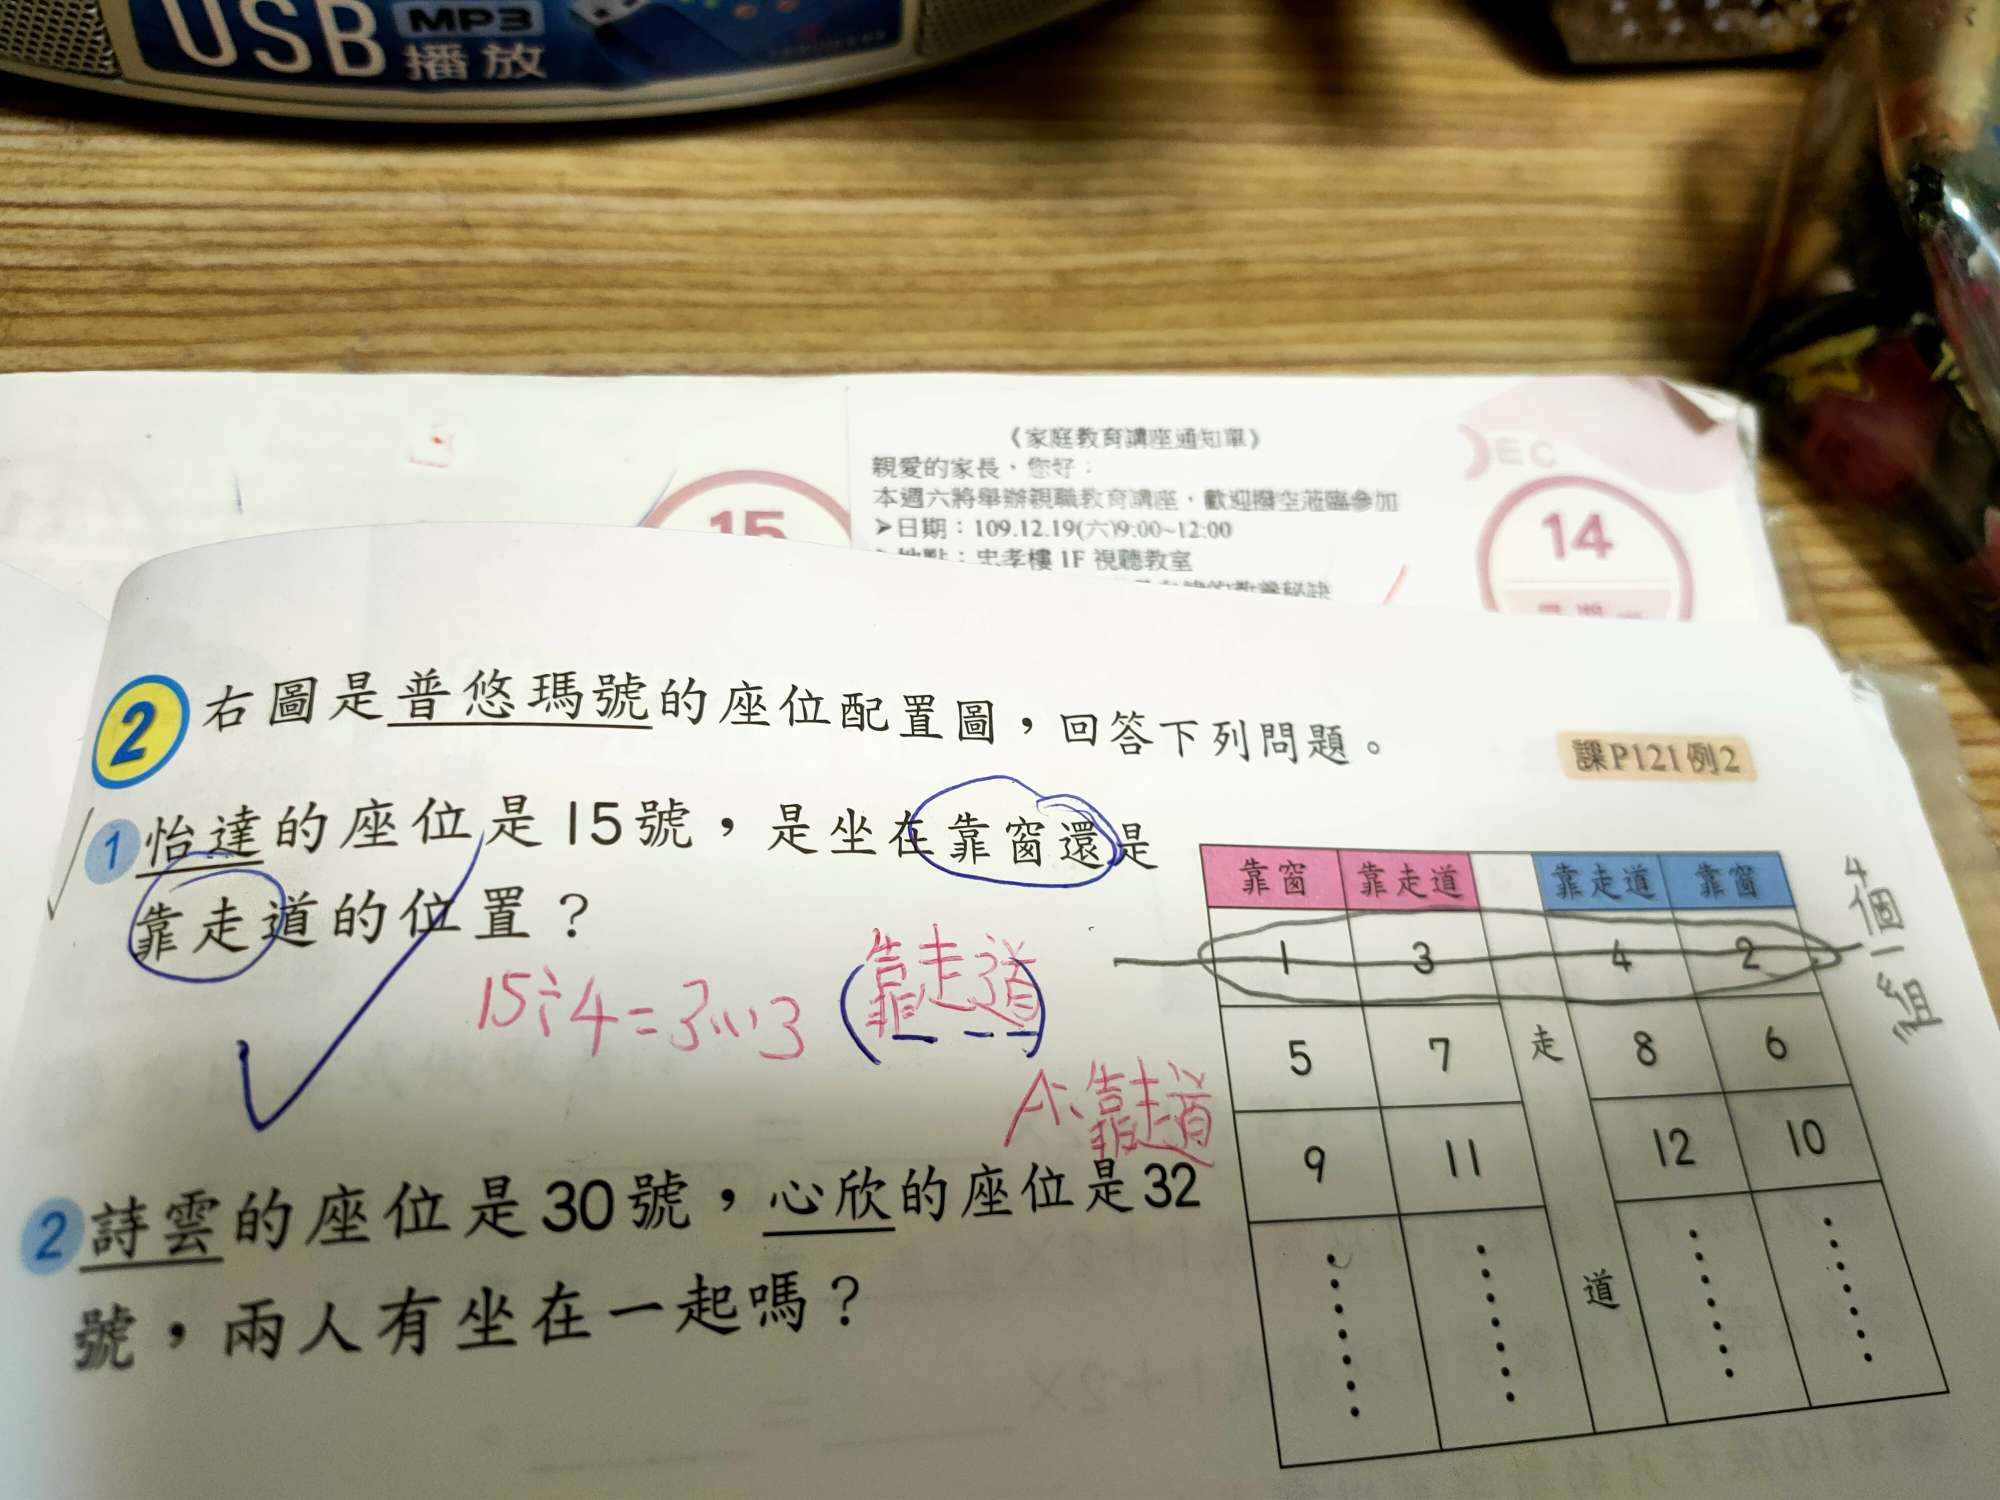 USB MP3
播放
《家庭教育講座通知單》
親愛的家長、您好:
本週六將舉辦親職教育講座,歡迎撥空蒞臨參加
➤日期:109.12.19(六)9:00~12:00
地點:忠孝樓 1F 視聽教室
DEC
15
14
2 右圖是普悠瑪號的座位配置圖,回答下列問題。
課P121例2
1 怡達的座位是15號,是坐在靠窗還是
靠走道的位置?
15÷4=3…3 (靠走道)
A:靠走道
2 詩雲的座位是30號,心欣的座位是32
號,兩人有坐在一起嗎?
靠窗 靠走道 靠走道 靠窗
1 3 4 2
5 7 走 8 6
9 11 12 10
道
4個一組